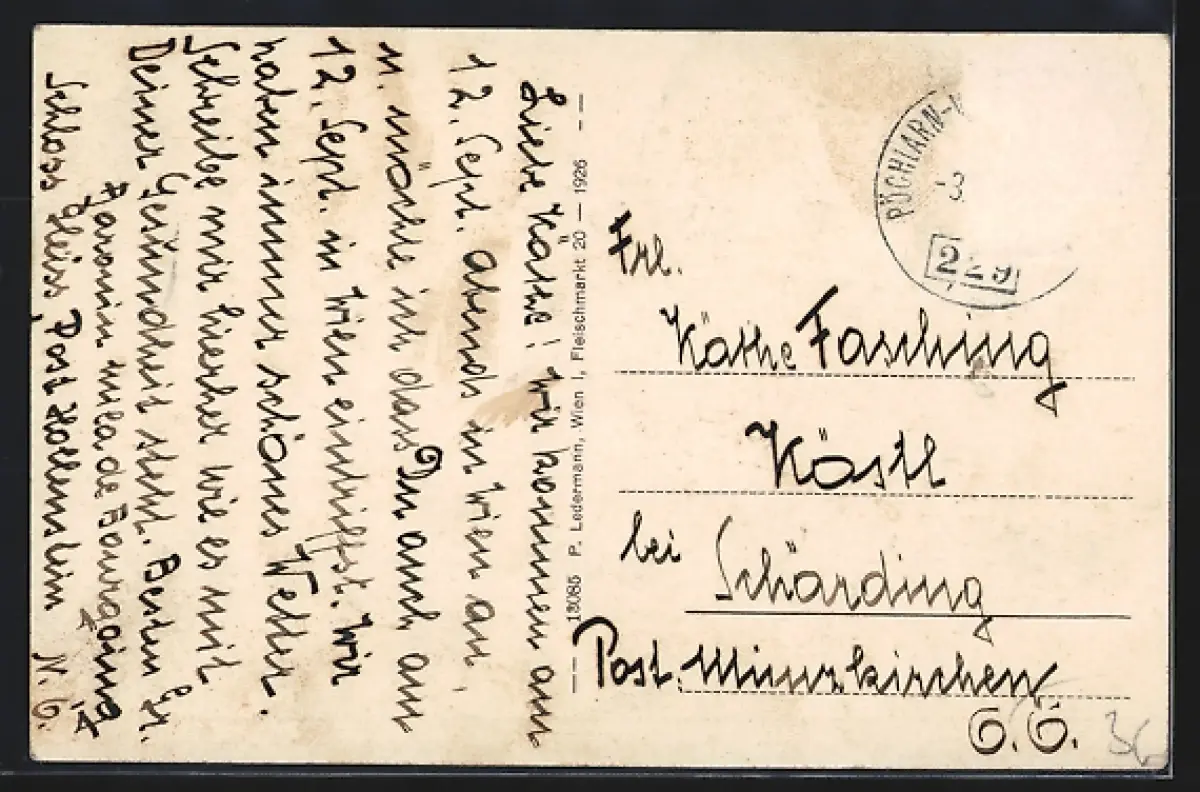 Liebe Käthe! Wir kommen am
12. Sept. abends in Wien an,
u. möchte ich dass Du auch am
12. Sept. in Wien eintriffst. Wir
haben immer schönes Wetter.
Schreibe mir hierher wie es mit
Deiner Gesundheit steht. Besten Gr.
Baronin
Schloss Gleiss Post Hollenstein N.Ö.
13085 P. Ledermann, Wien I, Fleischmarkt 20 — 1926
PÖCHLARN-
-3
229
Frl.
Käthe Fasching
Köstl
bei Schärding
Post Münzkirchen
O.Ö.
36